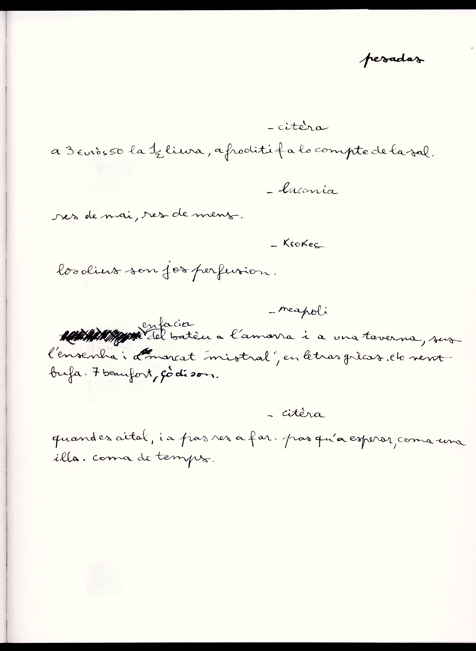 pesadas
- citèra
a 3 euròs 50 la ½ liura, afroditi fa lo compte de la sal.
- laconia
res de mai, res de mens.
- Krokeç
los olius son jos perfusion.
- neapoli
en facia
del batèu a l'amarra i a una taverna, sus
l'ensenha i a marcat "mistral", en letras grècas. e lo vent
bufa. 7 beaufort, çò dison.
- citèra
quand es aital, i a pas res a far. pas qu'a esperar, coma una
illa. coma de temps.